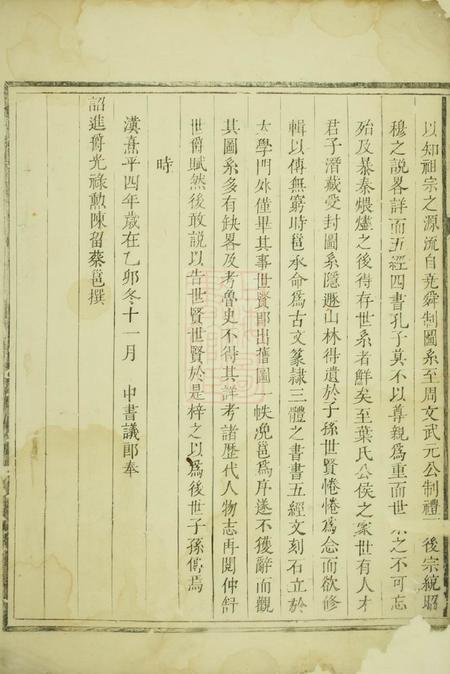 以知祖宗之源流自堯舜制圖系至周文武元公制禮 後宗統昭
穆之說畧詳而五經四書孔子莫不以尊親爲重而世 之不可忘
殆及暴秦煨燼之後得存世系者鮮矣至葉氏公侯之家世有人才
君子潛藏受封圖系隱遯山林得遺於子孫世賢惓惓爲念而欲修
輯以傳無窮時邕承命爲古文篆隷三體之書書五經文刻石立於
太學門外僅畢其事世賢卽出舊圖一帙浼邕爲序遂不獲辭而觀
其圖系多有缺畧及考魯史不得其詳考諸歷代人物志再閱仲舒
世爵賦然後敢說以告世賢世賢於是梓之以爲後世子孫僃焉
時
漢熹平四年歲在乙卯冬十一月 中書議郎奉
詔進爵光祿勲陳留蔡邕撰